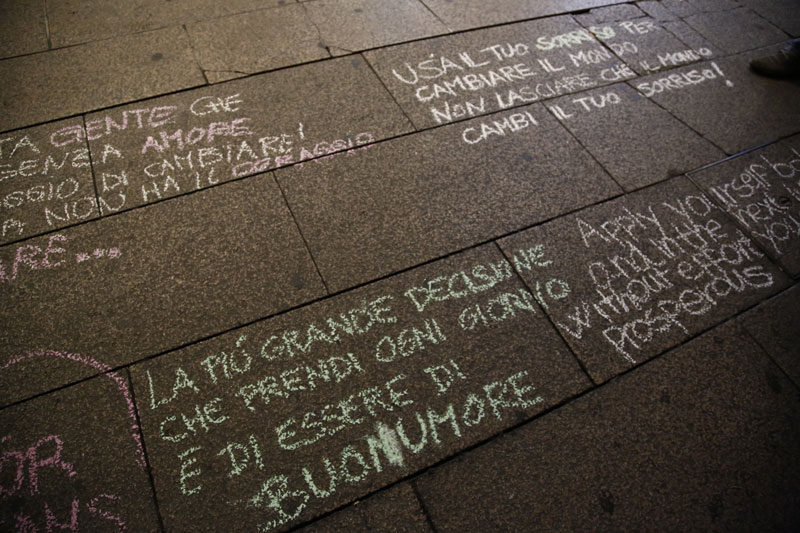 USA IL TUO SORRISO PER
CAMBIARE IL MONDO
NON LASCIARE CHE IL MONDO
CAMBI IL TUO SORRISO!
GENTE CHE
SENZA AMORE
DI CAMBIARE!
NON HA IL CORAGGIO
...
LA PIÚ GRANDE DECISIONE
CHE PRENDI OGNI GIORNO
E DI ESSERE DI
BUONUMORE
Apply yourself
and in the next
without effort you
prosperous